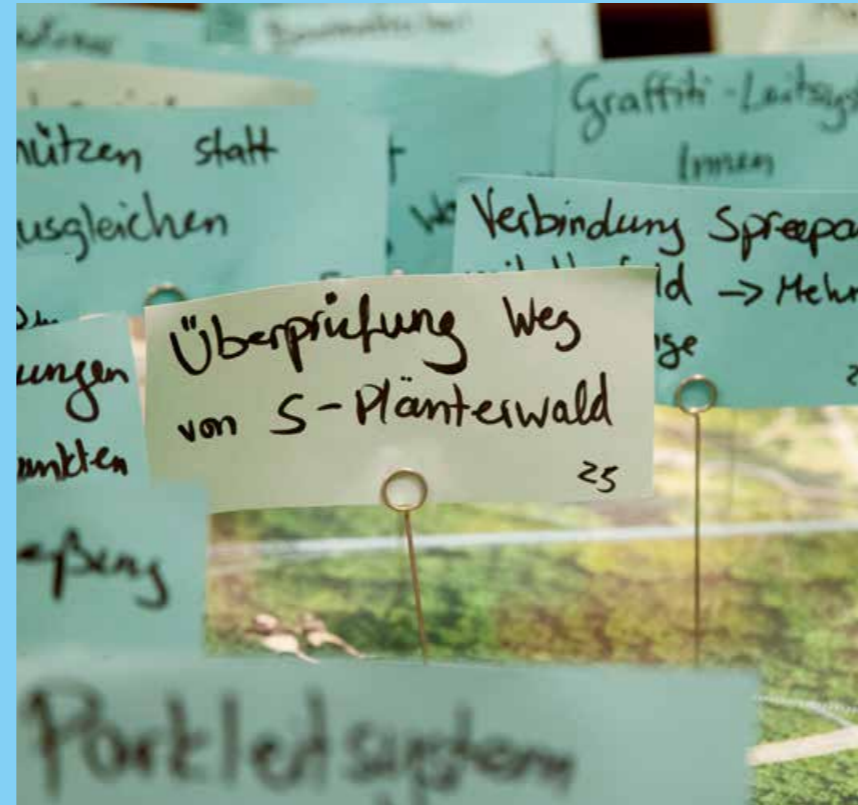 Graffiti-Leitsys
Innen
nützen statt
usgleichen
Verbindung Spreepa
ld → Mehr
ge
Überprüfung Weg
von S-Plänterwald
25
ungen
unkten
eßung
Parkleitsystem